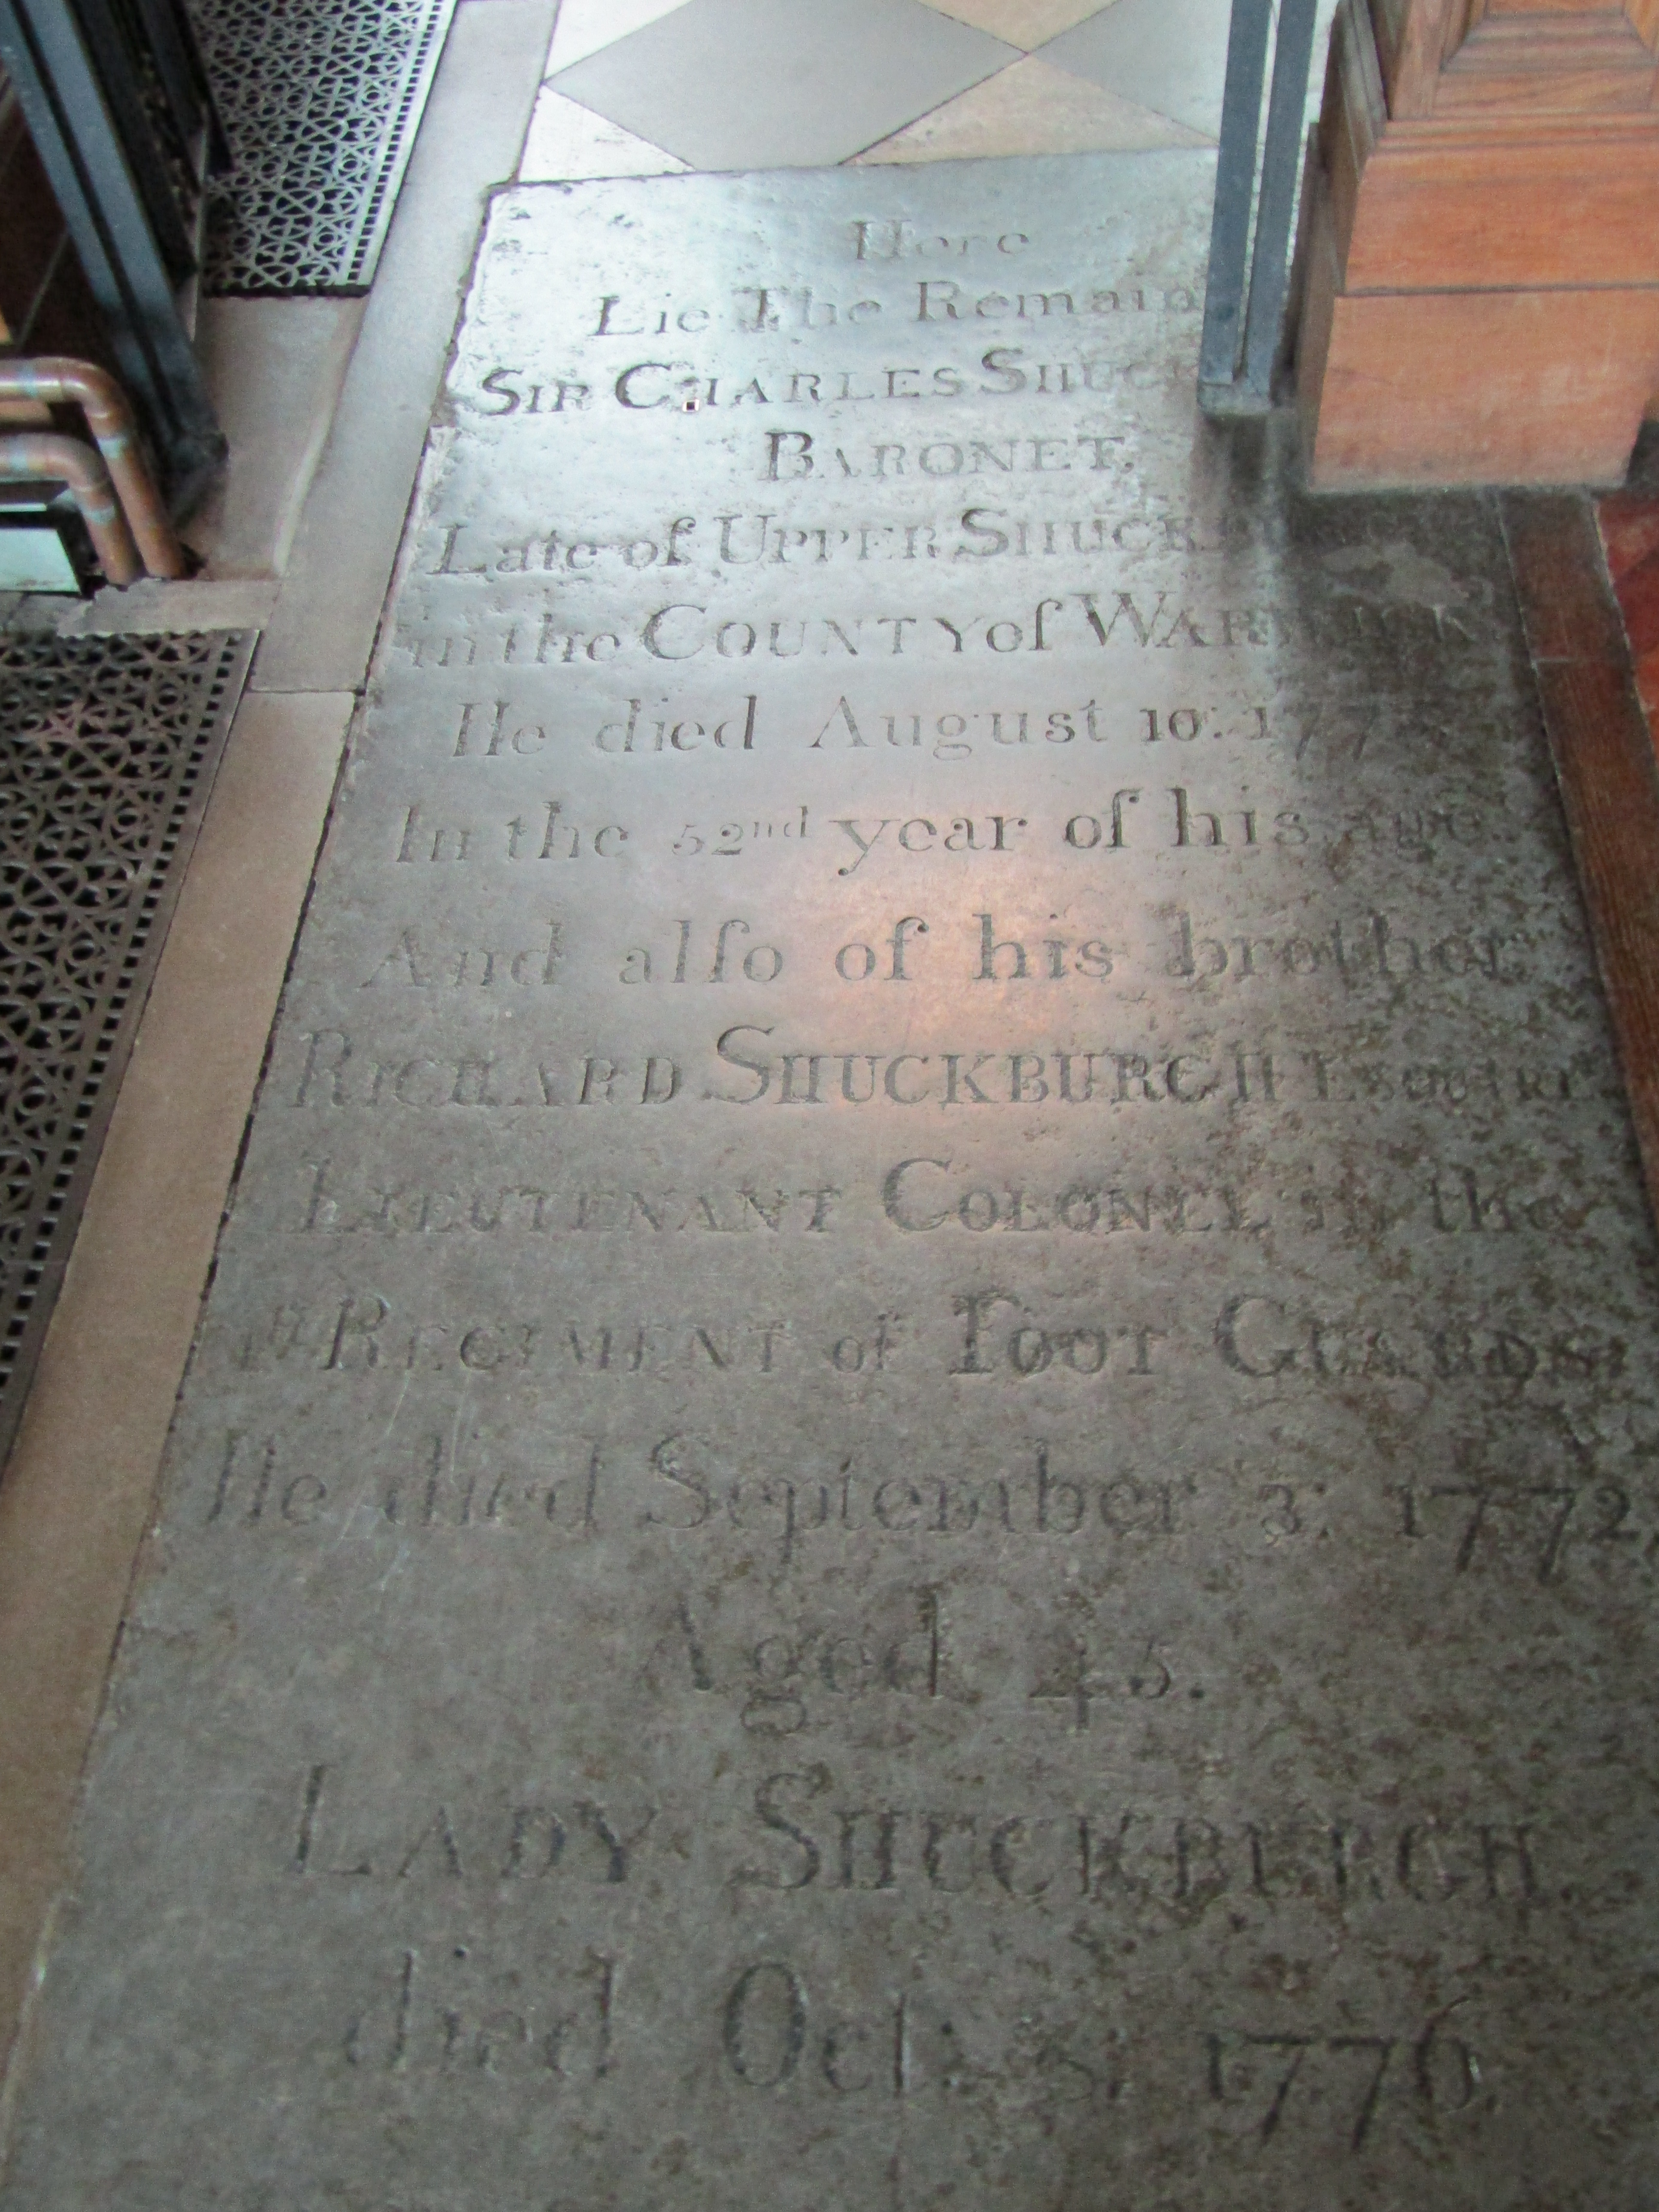 Here
Lie The Remain
SIR CHARLES SHUC
BARONET,
Late of UPPER SHUCK
in the COUNTY of WARWICK
He died August 10: 177
In the 52nd year of his age.
And alſo of his brother
RICHARD SHUCKBURGH ESQUIRE
LIEUTENANT COLONEL in the
1st REGIMENT of FOOT GUARDS
He died September 3: 1772,
Aged 45.
LADY SHUCKBURGH
died Oct: 5: 1776.